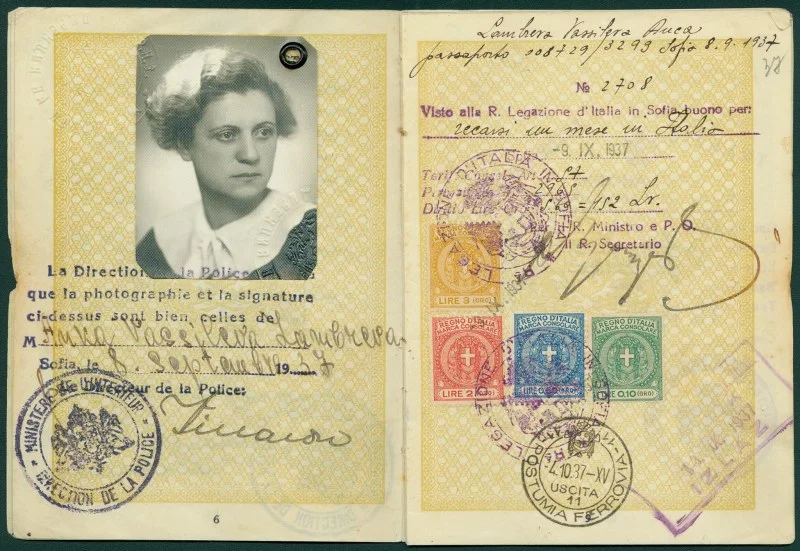 La Direction la Police
que la photographie et la signature
ci-dessus sont bien celles de
M Anna Vassileva Lambreva
Sofia, le 8 septembre 1937
Le Directeur de la Police:
MINISTÈRE DE L'INTÉRIEUR
DIRECTION DE LA POLICE
6
Lambreva Vassileva Anca
passaporto 008729/3293 Sofia 8.9.1937
38
№ 2708
Visto alla R. Legazione d'Italia in Sofia buono per:
recarsi un mese in Italia
-9. IX. 1937
Tarif. Consol. Art.
152 Lv.
R. Ministro e P. O.
Il R. Segretario
LEGAZIONE D'ITALIA IN SOFIA
LIRE 3 (ORO)
REGNO D'ITALIA
MARCA CONSOLARE
LIRE 2 (ORO)
REGNO D'ITALIA
MARCA CONSOLARE
(ORO)
REGNO D'ITALIA
MARCA CONSOLARE
0,10 (ORO)
LEGAZIONE IN SOFIA
-4.10.37-XV
USCITA
11
POSTUMIA FERROVIA